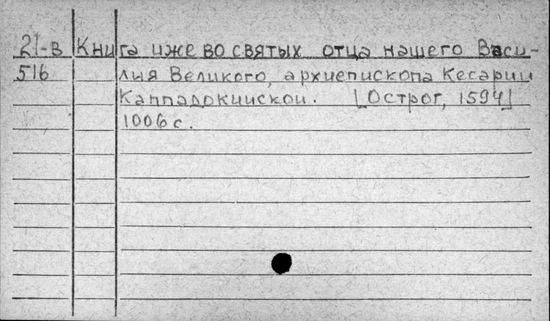 21-в Книга иже во святых отца нашего Васи-
516 лия Великого, архиепископа Кесарии
Каппадокийской. [Острог, 1594]
1006 с.